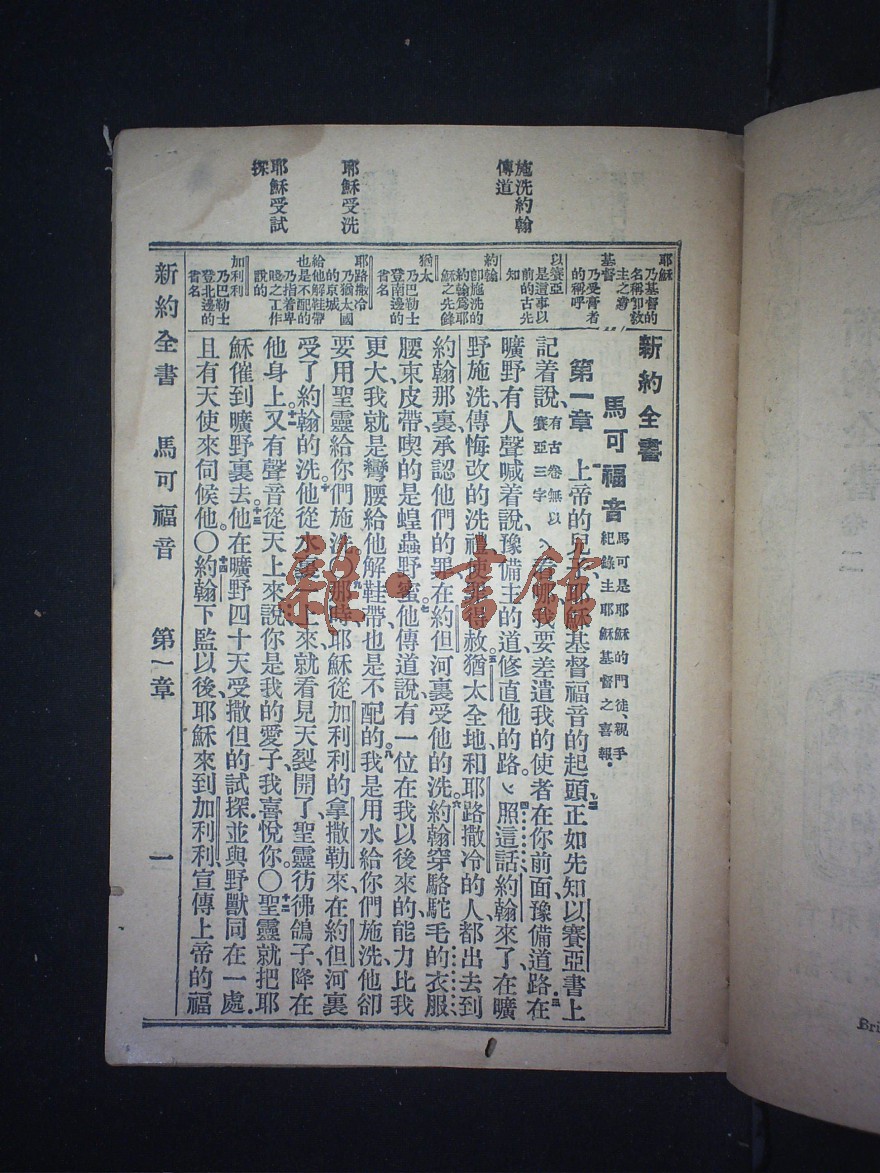 施洗約翰
傳道
耶穌受洗
耶穌受試
探
耶穌
乃基督的
名稱卽救
主之意
基督
乃受膏者
的稱呼
以賽亞
是這事以
前的古先
知
約翰
卽施洗的
約翰爲耶
穌之先鋒
猶太
乃巴勒士
登南邊的
省名
耶路撒冷
乃猶太國
的京城
給他解鞋帶
也是不配的
乃指着卑
賤之工作
說的
加利利
乃巴勒士
登北邊的
省名
新約全書
馬可福音 馬可是耶穌的門徒、親手
紀錄主耶穌基督之喜報。
第一章 一上帝的兒子耶穌基督福音的起頭、二正如先知以賽亞書上
記着說、有古卷無以
賽亞三字 看哪、我要差遣我的使者在你前面、豫備道路、三在
曠野有人聲喊着說、豫備主的道、修直他的路、四照這話、約翰來了、在曠
野施洗、傳悔改的洗禮、使罪得赦、五猶太全地和耶路撒冷的人、都出去到
約翰那裏、承認他們的罪、在約但河裏受他的洗。六約翰穿駱駝毛的衣服、
腰束皮帶、喫的是蝗蟲野蜜。七他傳道說、有一位在我以後來的、能力比我
更大、我就是彎腰給他解鞋帶、也是不配的。八我是用水給你們施洗、他卻
要用聖靈給你們施洗。〇九那時耶穌從加利利的拿撒勒來、在約但河裏
受了約翰的洗。十他從水裏一上來、就看見天裂開了、聖靈彷彿鴿子、降在
他身上。十一又有聲音從天上來說、你是我的愛子、我喜悅你。〇十二聖靈就把耶
穌催到曠野裏去。十三他在曠野四十天受撒但的試探、並與野獸同在一處、
且有天使來伺候他。〇十四約翰下監以後、耶穌來到加利利、宣傳上帝的福
新約全書 馬可福音 第一章 一
雜·書館
Bri